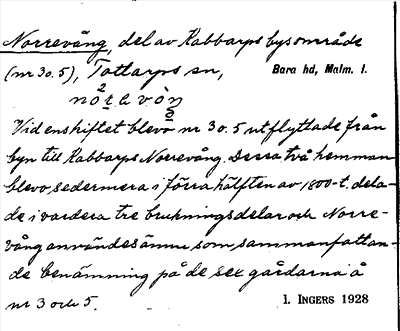 Norrevång, del av Kabbarps bysområde
(nr 3 o. 5), Tottarps sn, Bara hd, Malm. l.
Vid enskiftet blevo nr 3 o. 5 utflyttade från
byn till Kabbarps Norrevång. Dessa två hemman
blevo, sedermera i förra hälften av 1800-t. dela-
de i vardera tre brukningsdelar och Norre-
vång användes ännu som sammanfattan-
de benämning på de sex gårdarna å
nr 3 och 5.
I. INGERS 1928